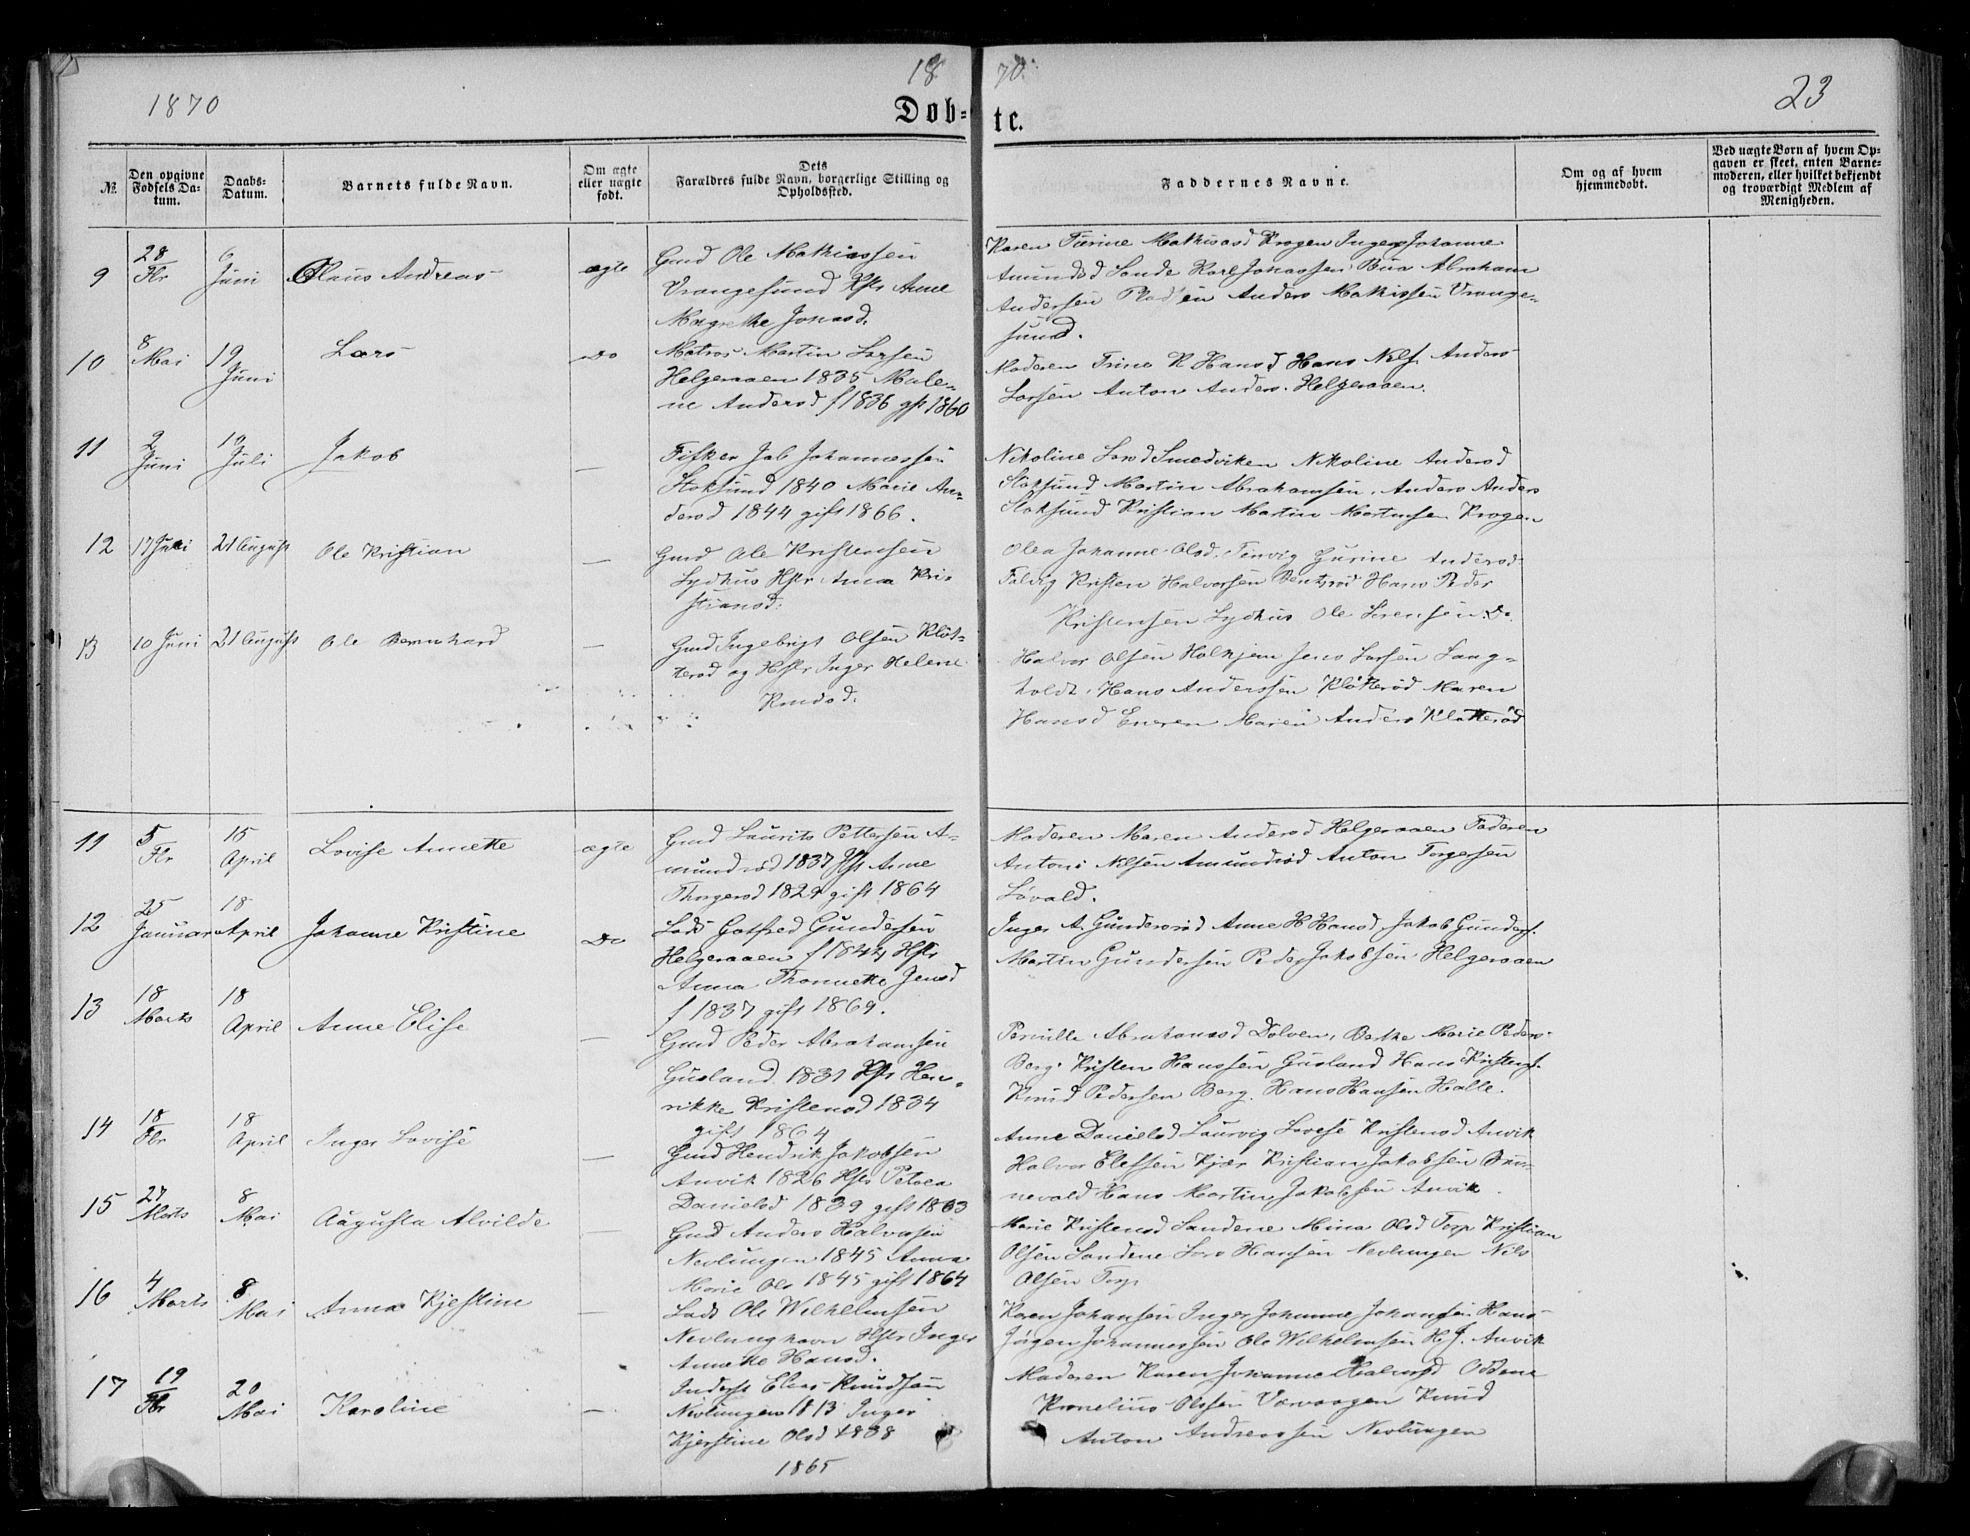 1870
18
70.
23
Døb-
te.
№
Den opgivne Fødsels Da-tum.
Daabs-Datum.
Barnets fulde Navn.
Om ægte eller uægte født.
Dets Forældres fulde Navn, borgerlige Stilling og Opholdssted.
Faddernes Navne.
Om og af hvem hjemmedøbt.
Ved uægte Børn af hvem Op-gaven er skeet, enten Barne-moderen, eller hvilket bekjendt og troværdigt Medlem af Menigheden.
9
28 Fbr
6 Juni
Claus Andreas
ægte
Gmd Ole Mathiassen
Vrangesund Hstr Anne
Magrethe Jonasd.
Karen Mathisasd Krogen Inger Johanne
Amundsd Sande Karl Jonassen Bua Abraham
Andersen Anders Mathissen Vrange-
sund.
10
8 Mai
19 Juni
Lars
Do
Matros Martin Larsen
Helgeraaen 1835 Male-
ne Andersd f 1836 gift 1860
Moderen Trine K Hansd Hans Nils Anders
Larsen Anton Anders. Helgeraaen.
11
2 Juni
10 Juli
Jakob
—
Fisker Jab Johannessen
Stoksund 1840 Marie An-
dersd 1844 gift 1866.
Nikoline Larsd Smedviken Nikoline Andersd
Stoksund Martin Abrahamsen. Anders Anders
Stoksund Kristian Martin Martinsen Krogen
12
17 Juni
21 August
Ole Kristian
—
Gmd Ole Kristensen
Sydhus Hstr Anna Kri-
stiansd:
Olea Johanne Olsd. Gurine Andersd
Kristen Halvorsen Hans Peder
Kristensen Sydhus Ole Sørensen Do.
13
10 Juni
21 August
Ole Bernhard
—
Gmd Ingebrigt Olsen Kløt-
terød og Hstr Inger Helene
Knudsd.
Halvor Olsen Holkjem Jens Larsen Lang-
holdt. Hans Anderssen Kløtterød Maren
Hansd Eneren Maren Anders Kløtterød
11
5 Fbr
15 April
Lovise Annette
ægte
Gmd Laurits Pettersen A-
mundrød 1837 Hst Anne
Thorgersd 1829 gift 1864
Moderen Maren Andersd Helgeraaen Faderen
Anton Nilsen Amundrød Anton Torgersen
Løvald.
12
25 Januar
18 April
Johanne Kristine
Do
Lods Gotfred Gundersen
Helgeraaen f 1844 Hstr
Anna Thonette Jensd
f 1837 gift 1869.
Inger A. Gundersrød Anne H Hansd Jakob Gunders.
Martin Gundersen Peder Jakobsen Helgeraaen
13
18 Marts
18 April
Anne Elise
—
Gmd Peder Abrahamsen
Gusland 1831 Hstr Hen-
rikke Kristensd 1834
gift 1864
Pernille Abrahamsd Dolven, Berthe Marie Peders
Berg. Kristen Hanssen Gusland Hans Kristens.
Knud Pedersen Berg. Hans Hansen Halle.
14
18 Fbr
18 April
Inger Lovise
—
Gmd Hendrik Jakobsen
Anvik 1826 Hstr Petrea
Danielsd 1839 gift 1863
Anne Danielsd Laurvig Lovise Kristensd Anvik
Halvor Elefsen Kjær Kristian Jakobsen Brun-
nevald Hans Martin Jakobsen Anvik.
15
27 Marts
8 Mai
Augusta Alvilde
—
Gmd Anders Halvorsen
Nevlungen 1845 Anna
Marie Ols 1845 gift 1864
Marie Kristensd Sandene Mina Olsd Torp Kristian
Olsen Sandene Lars Hansen Nevlungen Nils
Olsen Torp
16
4 Marts
8 Mai
Anna Kjestine
—
Lods Ole Wilhelmsen
Nevlunghavn Hstr Inger
Annette Hansd.
Karen Johansen Inger Johanne Johansen Hans
Jørgen Johannessen Ole Wilhelmsen H J. Anvik
17
19 Fbr
20 Mai
Karoline
—
Inderst Elias Knudssøn
Nevlungen 1813 Inger
Kjerstine Olsd 1838
1865
Moderen Karen Johanne Halvorsd Oddene
Kornelius Olssen Værvaagen Knud
Anton Andreassen Nevlungen